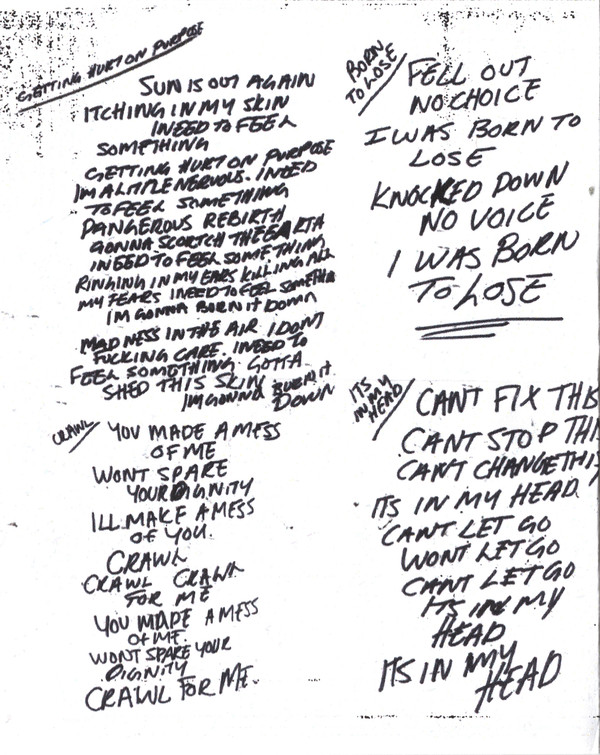 GETTING HURT ON PURPOSE
SUN IS OUT AGAIN
ITCHING IN MY SKIN
I NEED TO FEEL
SOMETHING
GETTING HURT ON PURPOSE
IM A LITTLE NERVOUS. I NEED
TO FEEL SOMETHING
DANGEROUS REBIRTH
GONNA SCORTCH THE EARTH
I NEED TO FEEL SOMETHING
RINGING IN MY EARS KILLING ALL
MY FEARS I NEED TO FEEL SOMETHING
IM GONNA BURN IT DOWN
MADNESS IN THE AIR I DONT
FUCKING CARE. I NEED TO
FEEL SOMETHING. GOTTA
SHED THIS SKIN
IM GONNA BURN IT
DOWN
CRAWL
YOU MADE A MESS
OF ME
WONT SPARE
YOUR DIGNITY
ILL MAKE A MESS
OF YOU.
CRAWL
CRAWL CRAWL
FOR ME
YOU MADE A MESS
OF ME.
WONT SPARE YOUR
DIGNITY
CRAWL FOR ME.
BORN
TO LOSE
FELL OUT
NO CHOICE
I WAS BORN TO
LOSE
KNOCKED DOWN
NO VOICE
I WAS BORN
TO LOSE
ITS
IN MY
HEAD
CANT FIX THIS
CANT STOP THI
CANT CHANGE THIS
ITS IN MY HEAD.
CANT LET GO
WONT LET GO
CANT LET GO
ITS IN MY
HEAD
ITS IN MY
HEAD